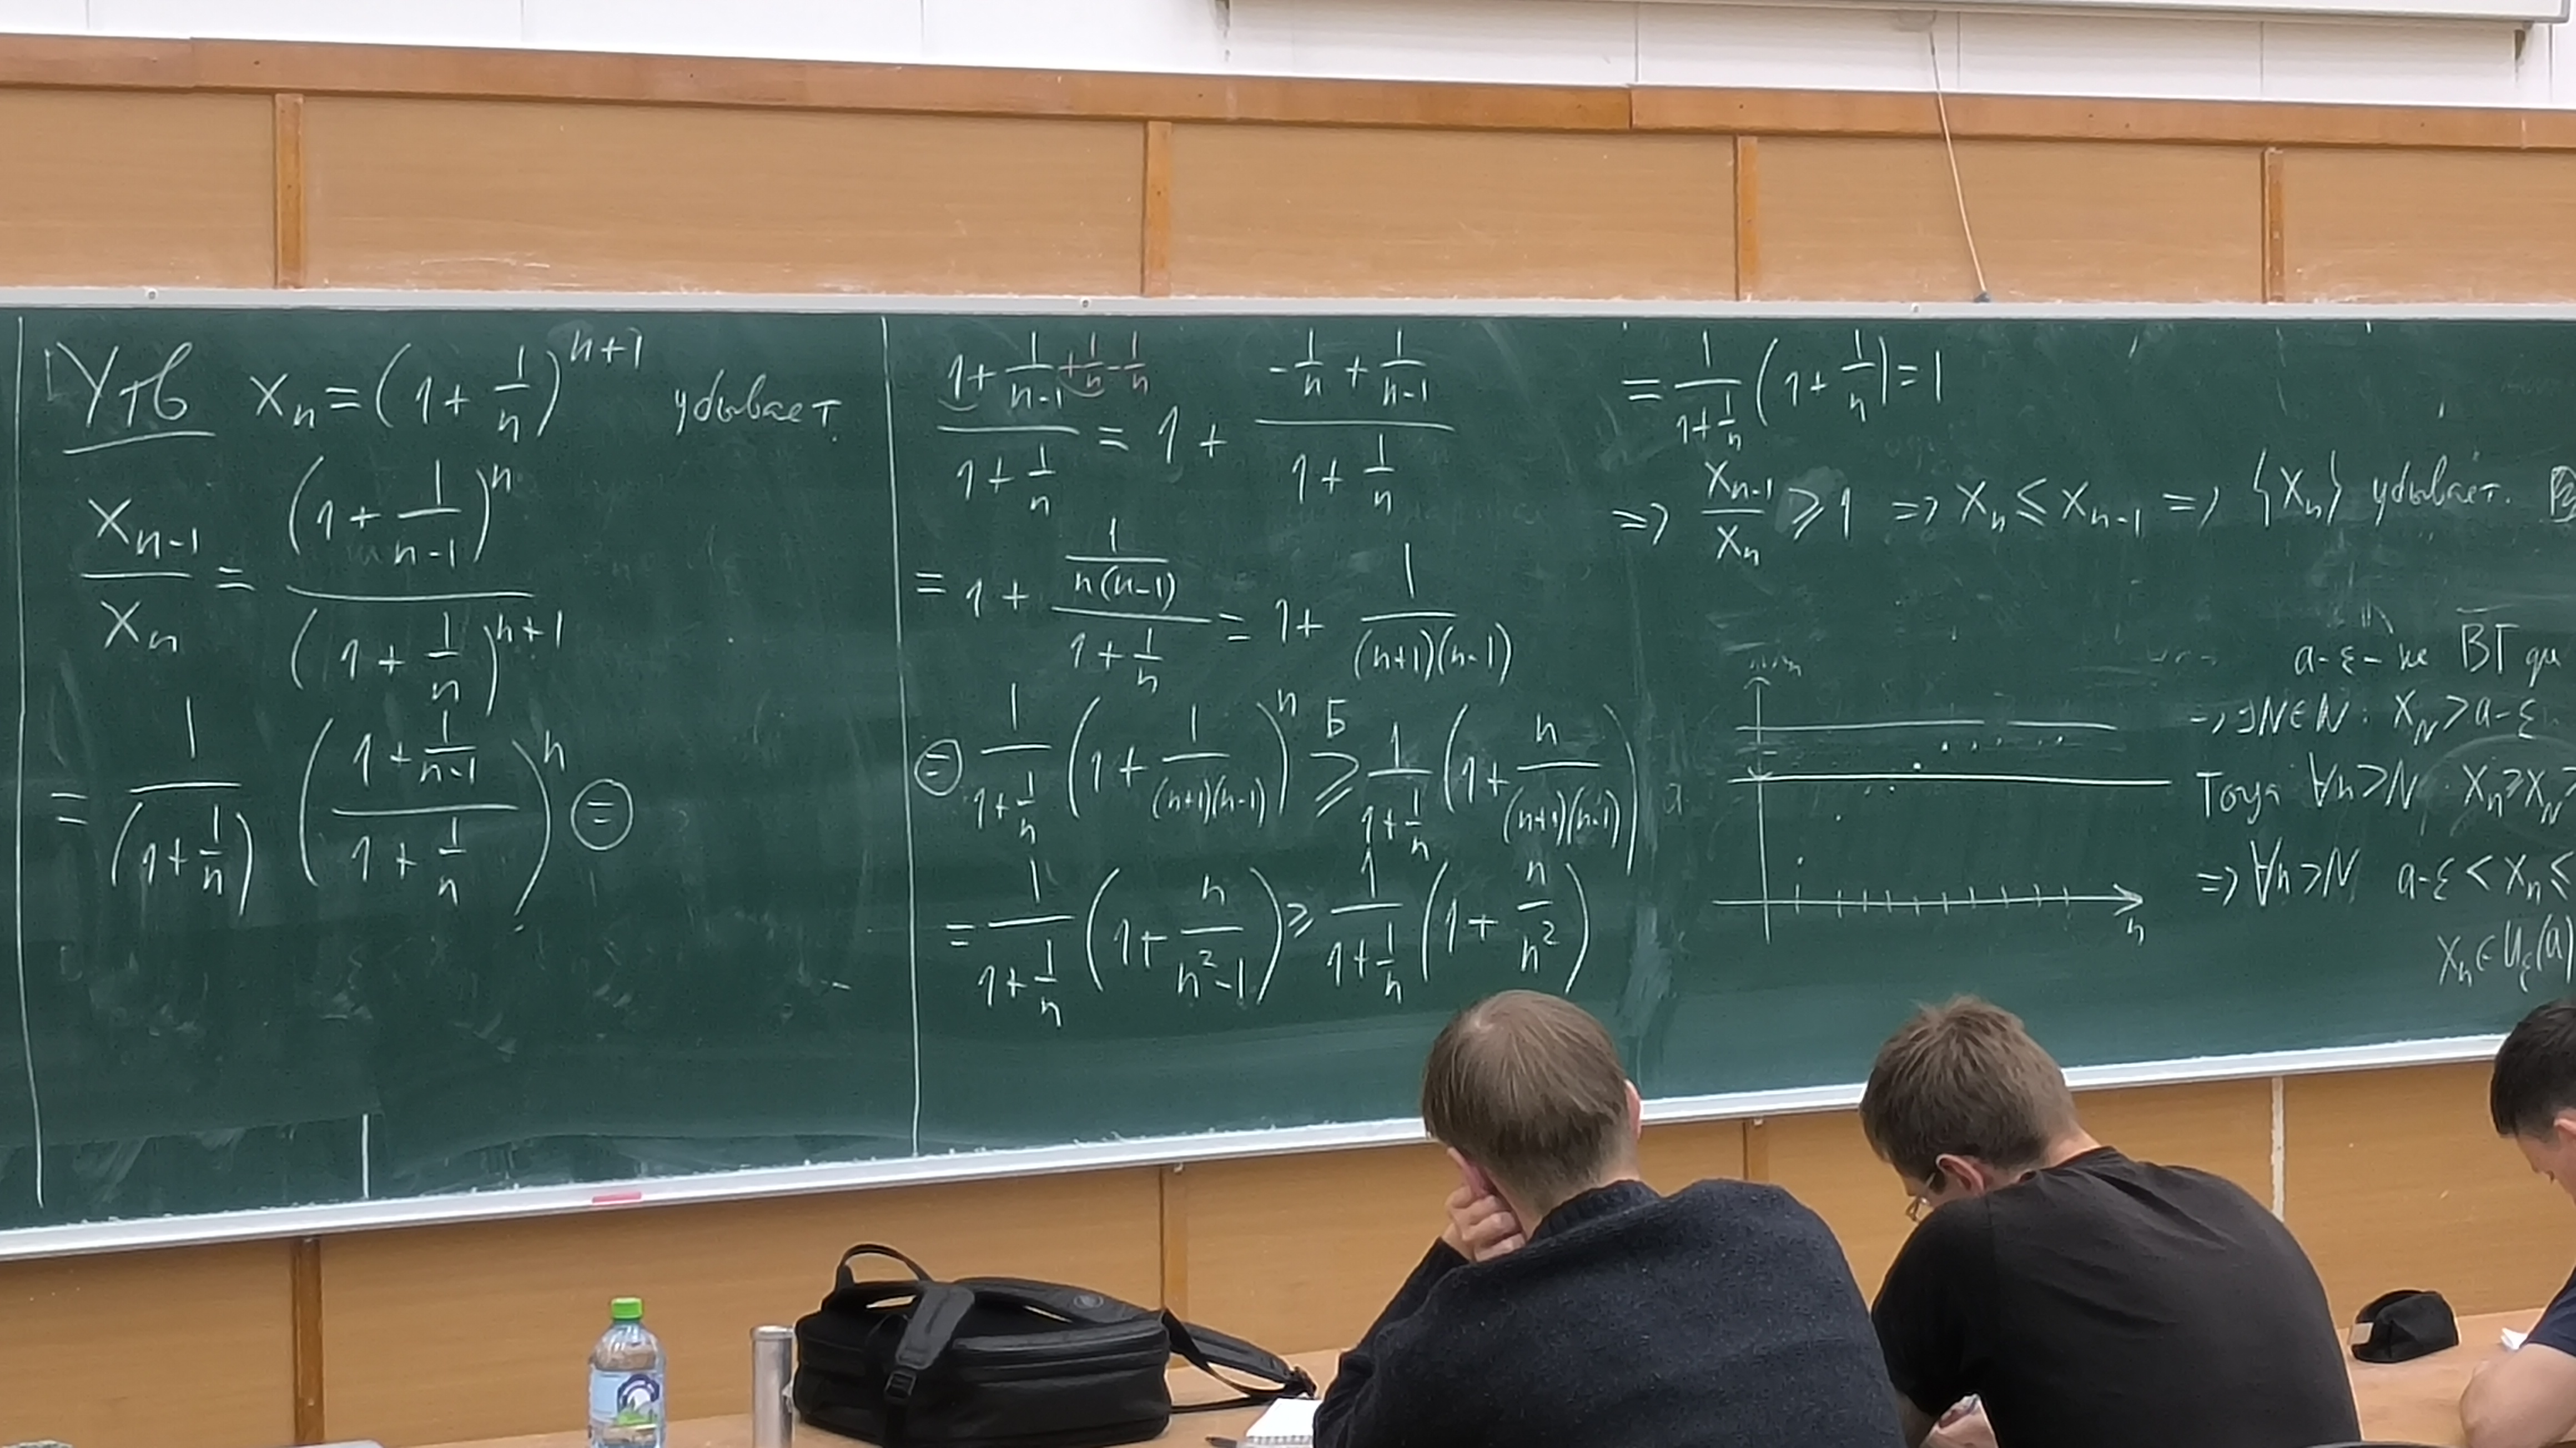 Утв x_n = (1 + 1/n)^{n+1} убывает.
x_{n-1}/x_n = (1 + 1/(n-1))^n / (1 + 1/n)^{n+1}
= 1/(1 + 1/n) ((1 + 1/(n-1))/(1 + 1/n))^n ⊜
(1 + 1/(n-1) + 1/n - 1/n)/(1 + 1/n) = 1 + (-1/n + 1/(n-1))/(1 + 1/n)
= 1 + (1/(n(n-1)))/(1 + 1/n) = 1 + 1/((n+1)(n-1))
⊜ 1/(1 + 1/n) (1 + 1/((n+1)(n-1)))^n ≥^Б 1/(1 + 1/n) (1 + n/((n+1)(n-1)))
= 1/(1 + 1/n) (1 + n/(n^2-1)) ≥ 1/(1 + 1/n) (1 + n/n^2)
= 1/(1 + 1/n) (1 + 1/n) = 1
=> x_{n-1}/x_n ≥ 1 => x_n ≤ x_{n-1} => {x_n} убывает.
a
n
a-ε - не ВГ
-> ∃N∈N: x_N > a-ε
Тогда ∀n>N x_n ≥ x_N >
=> ∀n>N a-ε < x_n ≤
x_n ∈ U_ε(a)